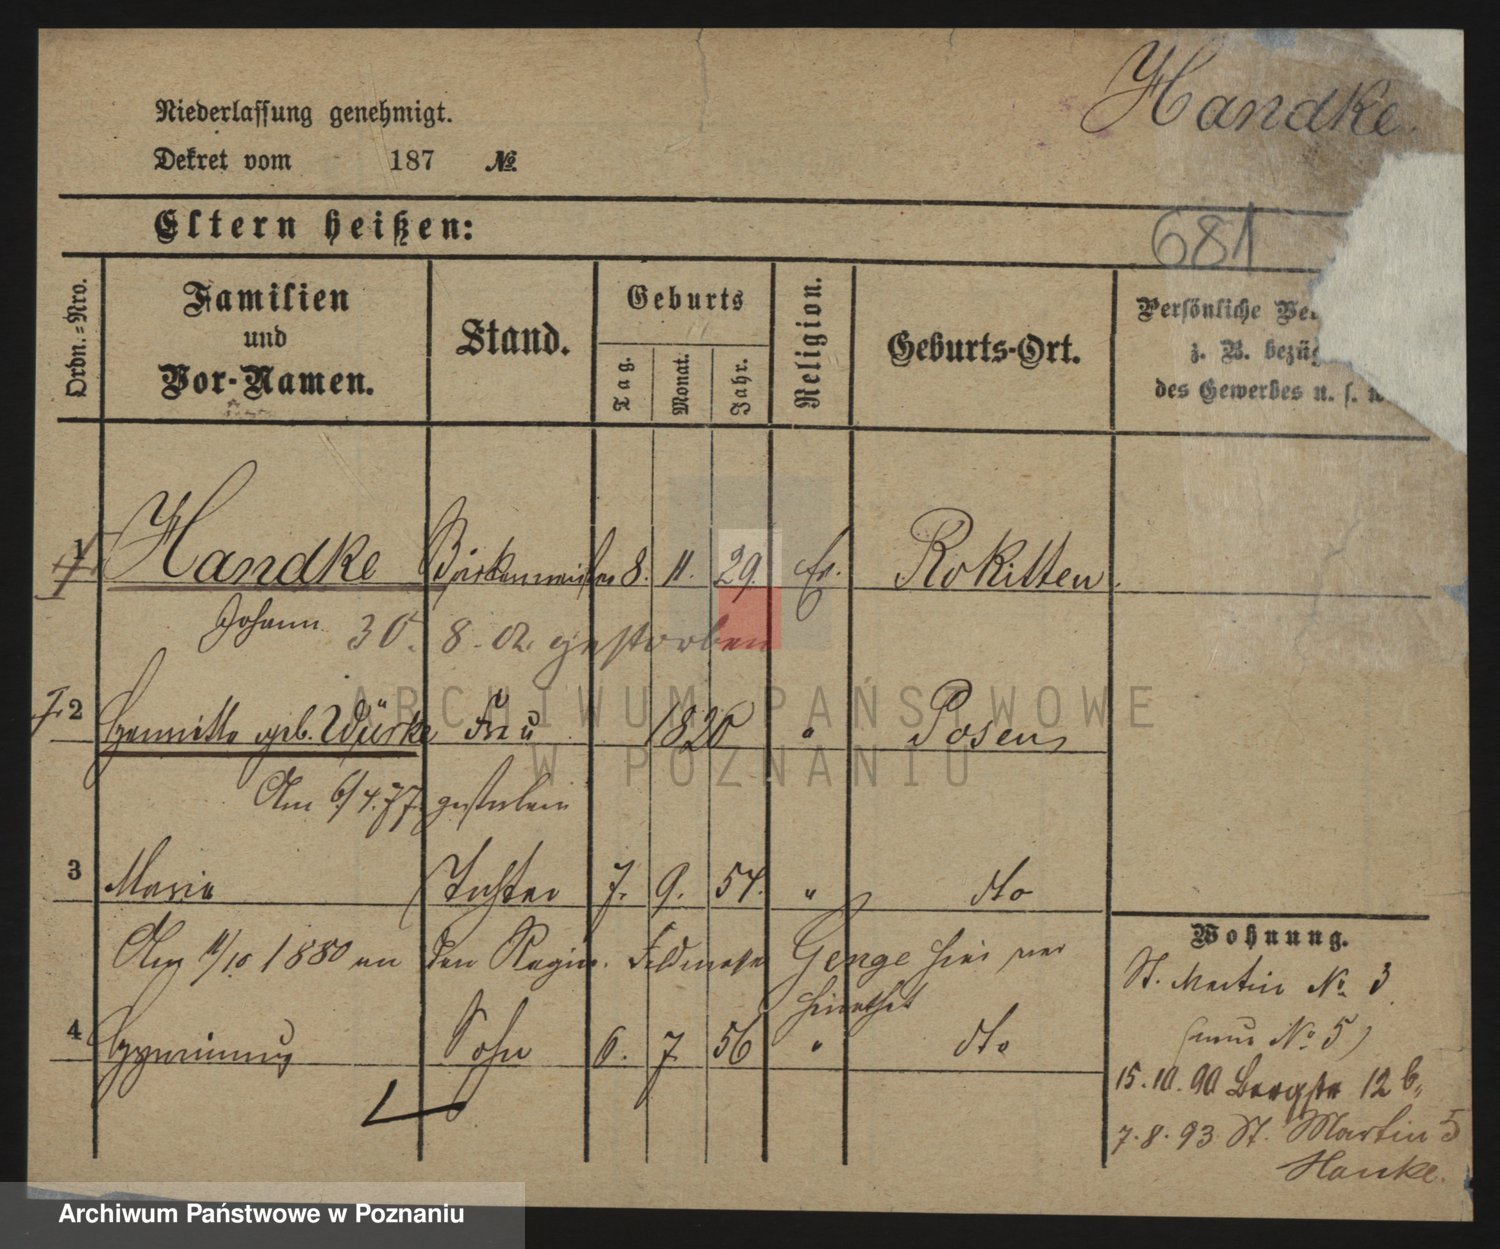 Handke.
Niederlassung genehmigt.
Dekret vom 187 №
Eltern heißen:
681
Ordn.=Nro.
Familien
und
Vor-Namen.
Stand.
Geburts
Tag.
Monat.
Jahr.
Religion.
Geburts-Ort.
Persönliche
z. B.
des Gewerbes u. s.
1 Handke 8. 11. 29. Rokitten.
Johann 30. 8. 02. gestorben
2 geb. Würke Frau 1826 " Posen
Am 6/4.77. gestorben
3 Maria Tochter 7. 9. 54. " dto
Am 11/10 1880 an den Feldmesser Genge hier ver
heirathet
4 Sohn 6. 7. 56 " dto
Wohnung.
St. Martin No. 3
(nun No 5)
15.10.90 Bergstr 12 b,
7.8.93 St. Martin 5
Hanke.
ARCHIWUM PAŃSTWOWE
W POZNANIU
Archiwum Państwowe w Poznaniu